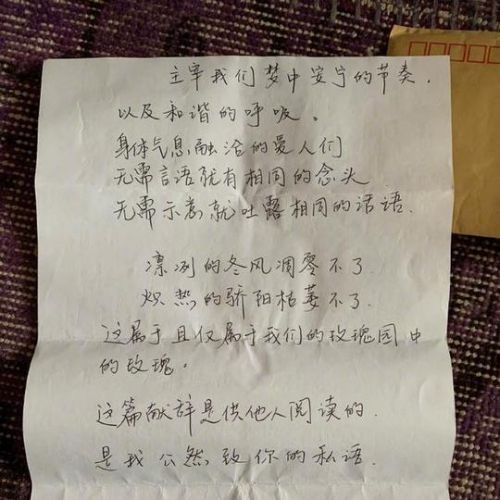 主宰我们梦中安宁的节奏，
以及和谐的呼吸。
身体气息融洽的爱人们
无需言语就有相同的念头
无需示意就吐露相同的话语.
凛冽的冬风凋零不了
炽热的骄阳枯萎不了.
这属于且仅属于我们的玫瑰园中
的玫瑰。
这篇献辞是供他人阅读的.
是我公然致你的私语.